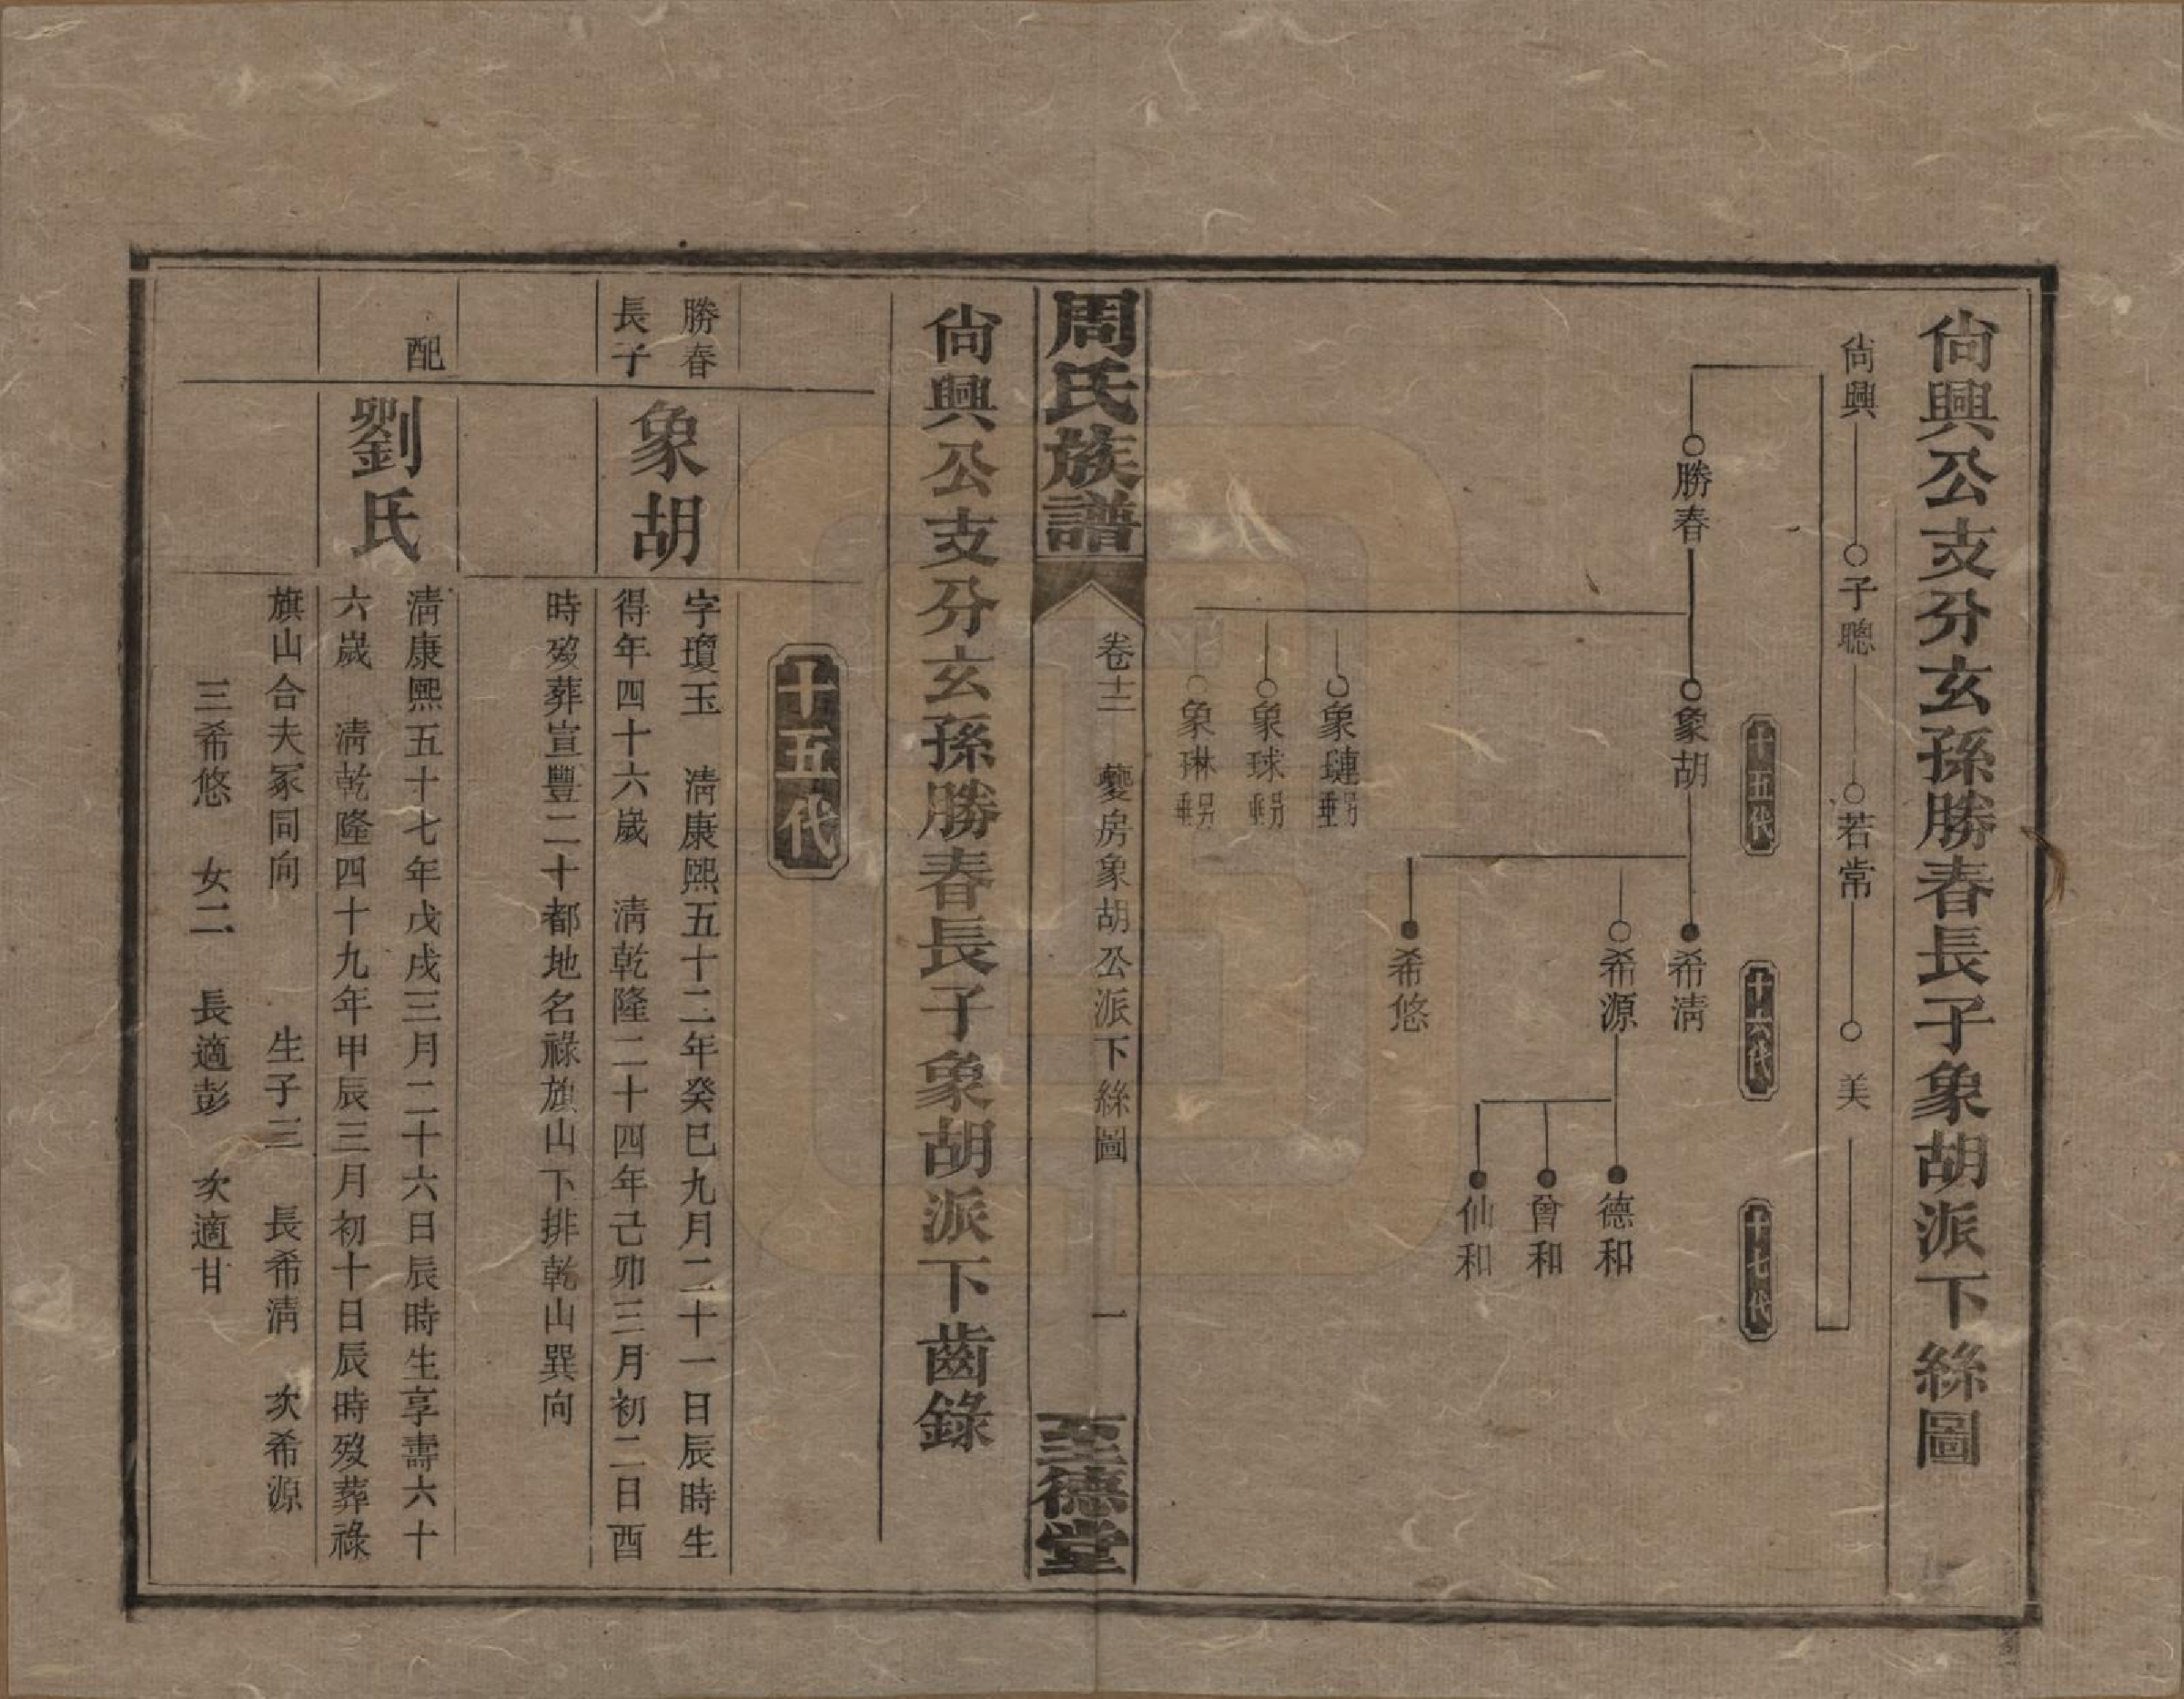 尙興公支分玄孫勝春長子象胡派下絲圖
尙興
子聰
若常
美
十五代
十六代
十七代
勝春
象胡
希淸
希源
德和
曾和
仙和
希悠
象璉 另垂
象球 另垂
象琳 另垂
周氏族譜
卷十二
夔房象胡公派下絲圖
一
至德堂
尙興公支分玄孫勝春長子象胡派下齒錄
十五代
勝春
長子
象胡
字瓊玉 淸康熙五十二年癸巳九月二十一日辰時生
得年四十六嵗 淸乾隆二十四年己卯三月初二日酉
時歿葬宣豐二十都地名祿旗山下排乾山巽向
配
劉氏
淸康熙五十七年戊戌三月二十六日辰時生享壽六十
六嵗 淸乾隆四十九年甲辰三月初十日辰時歿葬祿
旗山合夫冢同向 生子三 長希淸 次希源
三希悠 女二 長適彭 次適甘